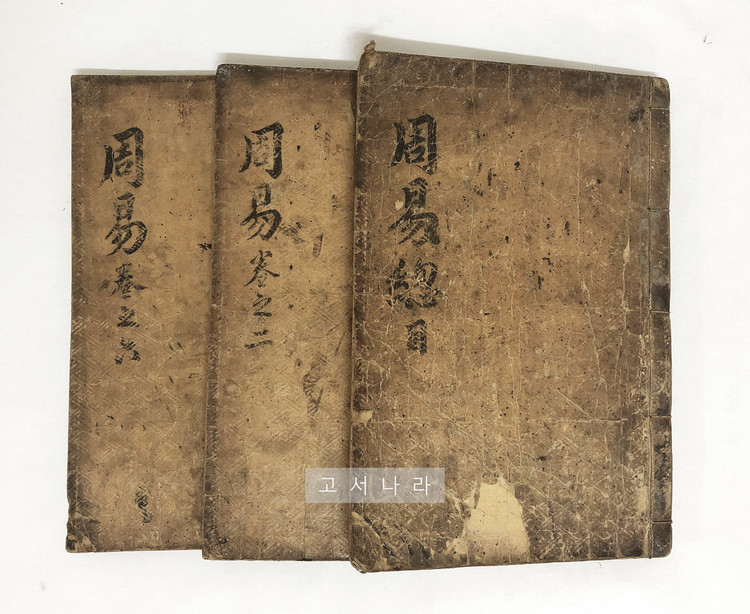 周易總
周易卷之二
周易卷之六
고서나라